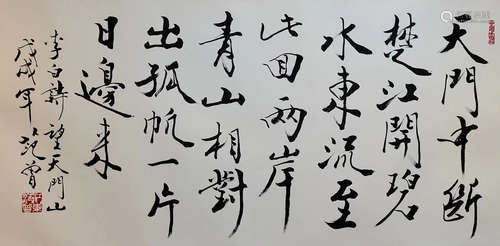 天門中断
楚江開碧
水東流至
此回兩岸
青山相對
出孤帆一片
日邊来
李白詩望天門山
戊戌年范曾